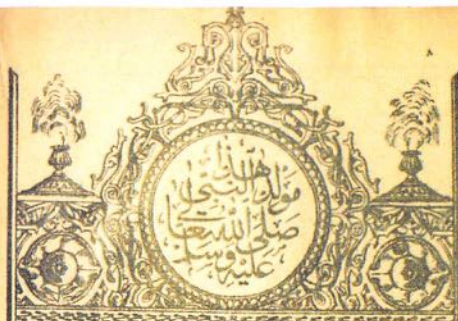 هذا
مولد النبي
صلى الله تعالى
عليه وسلم